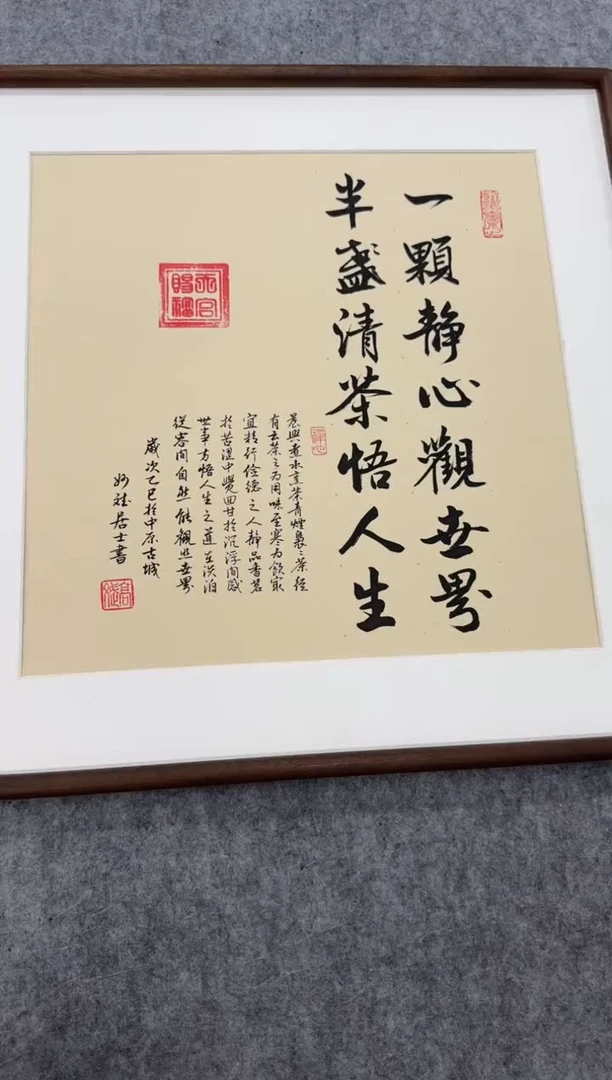 一顆静心觀世界
半盞清茶悟人生
晨興煮水烹茶青煙裊裊茶經
有云茶之為用味至寒為飲最
宜精行儉德之人静品香茗
於苦澀中覺回甘於沉浮間感
世事方悟人生之道在淡泊
從容間自然能觀照世界
歲次乙巳於中原古城
居士書
天官
賜福